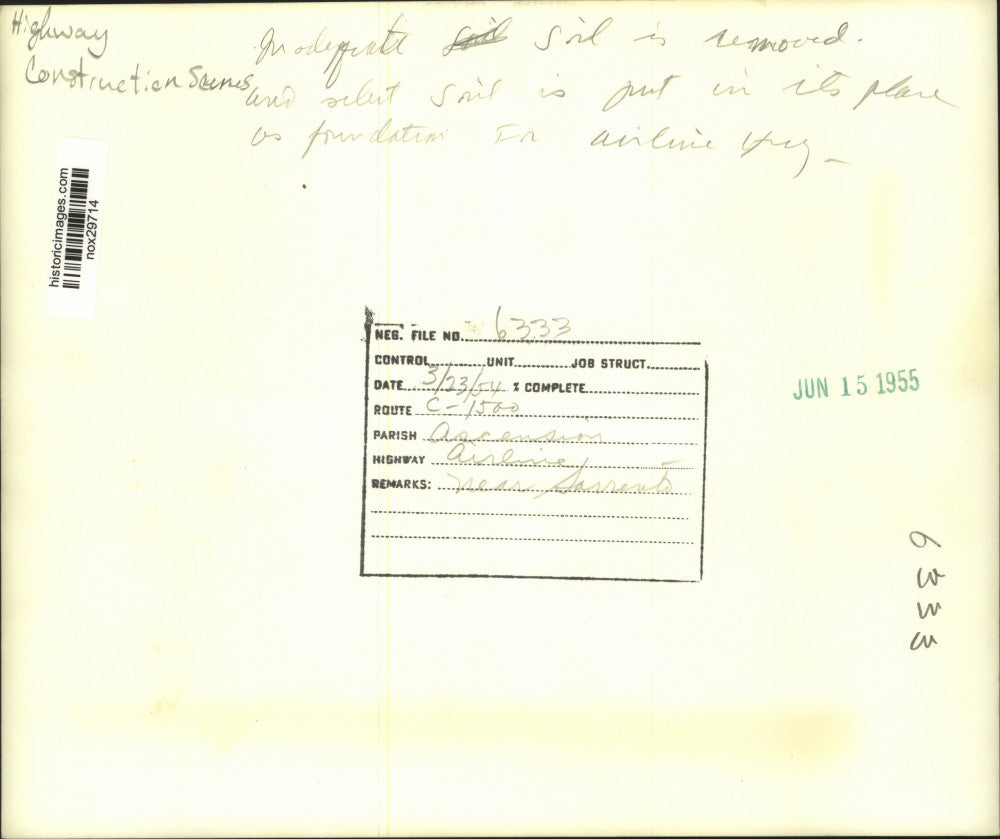 Highway
Construction Scenes
Inadequate soil Soil is removed.
and select soil is put in its place
as foundation For airline Hwy -
historicimages.com
nox29714
NEG. FILE NO. 6333
CONTROL UNIT JOB STRUCT.
DATE 3/23/54 % COMPLETE
ROUTE C-1500
PARISH Ascension
HIGHWAY Airline
REMARKS: near Sorrento
JUN 15 1955
6333